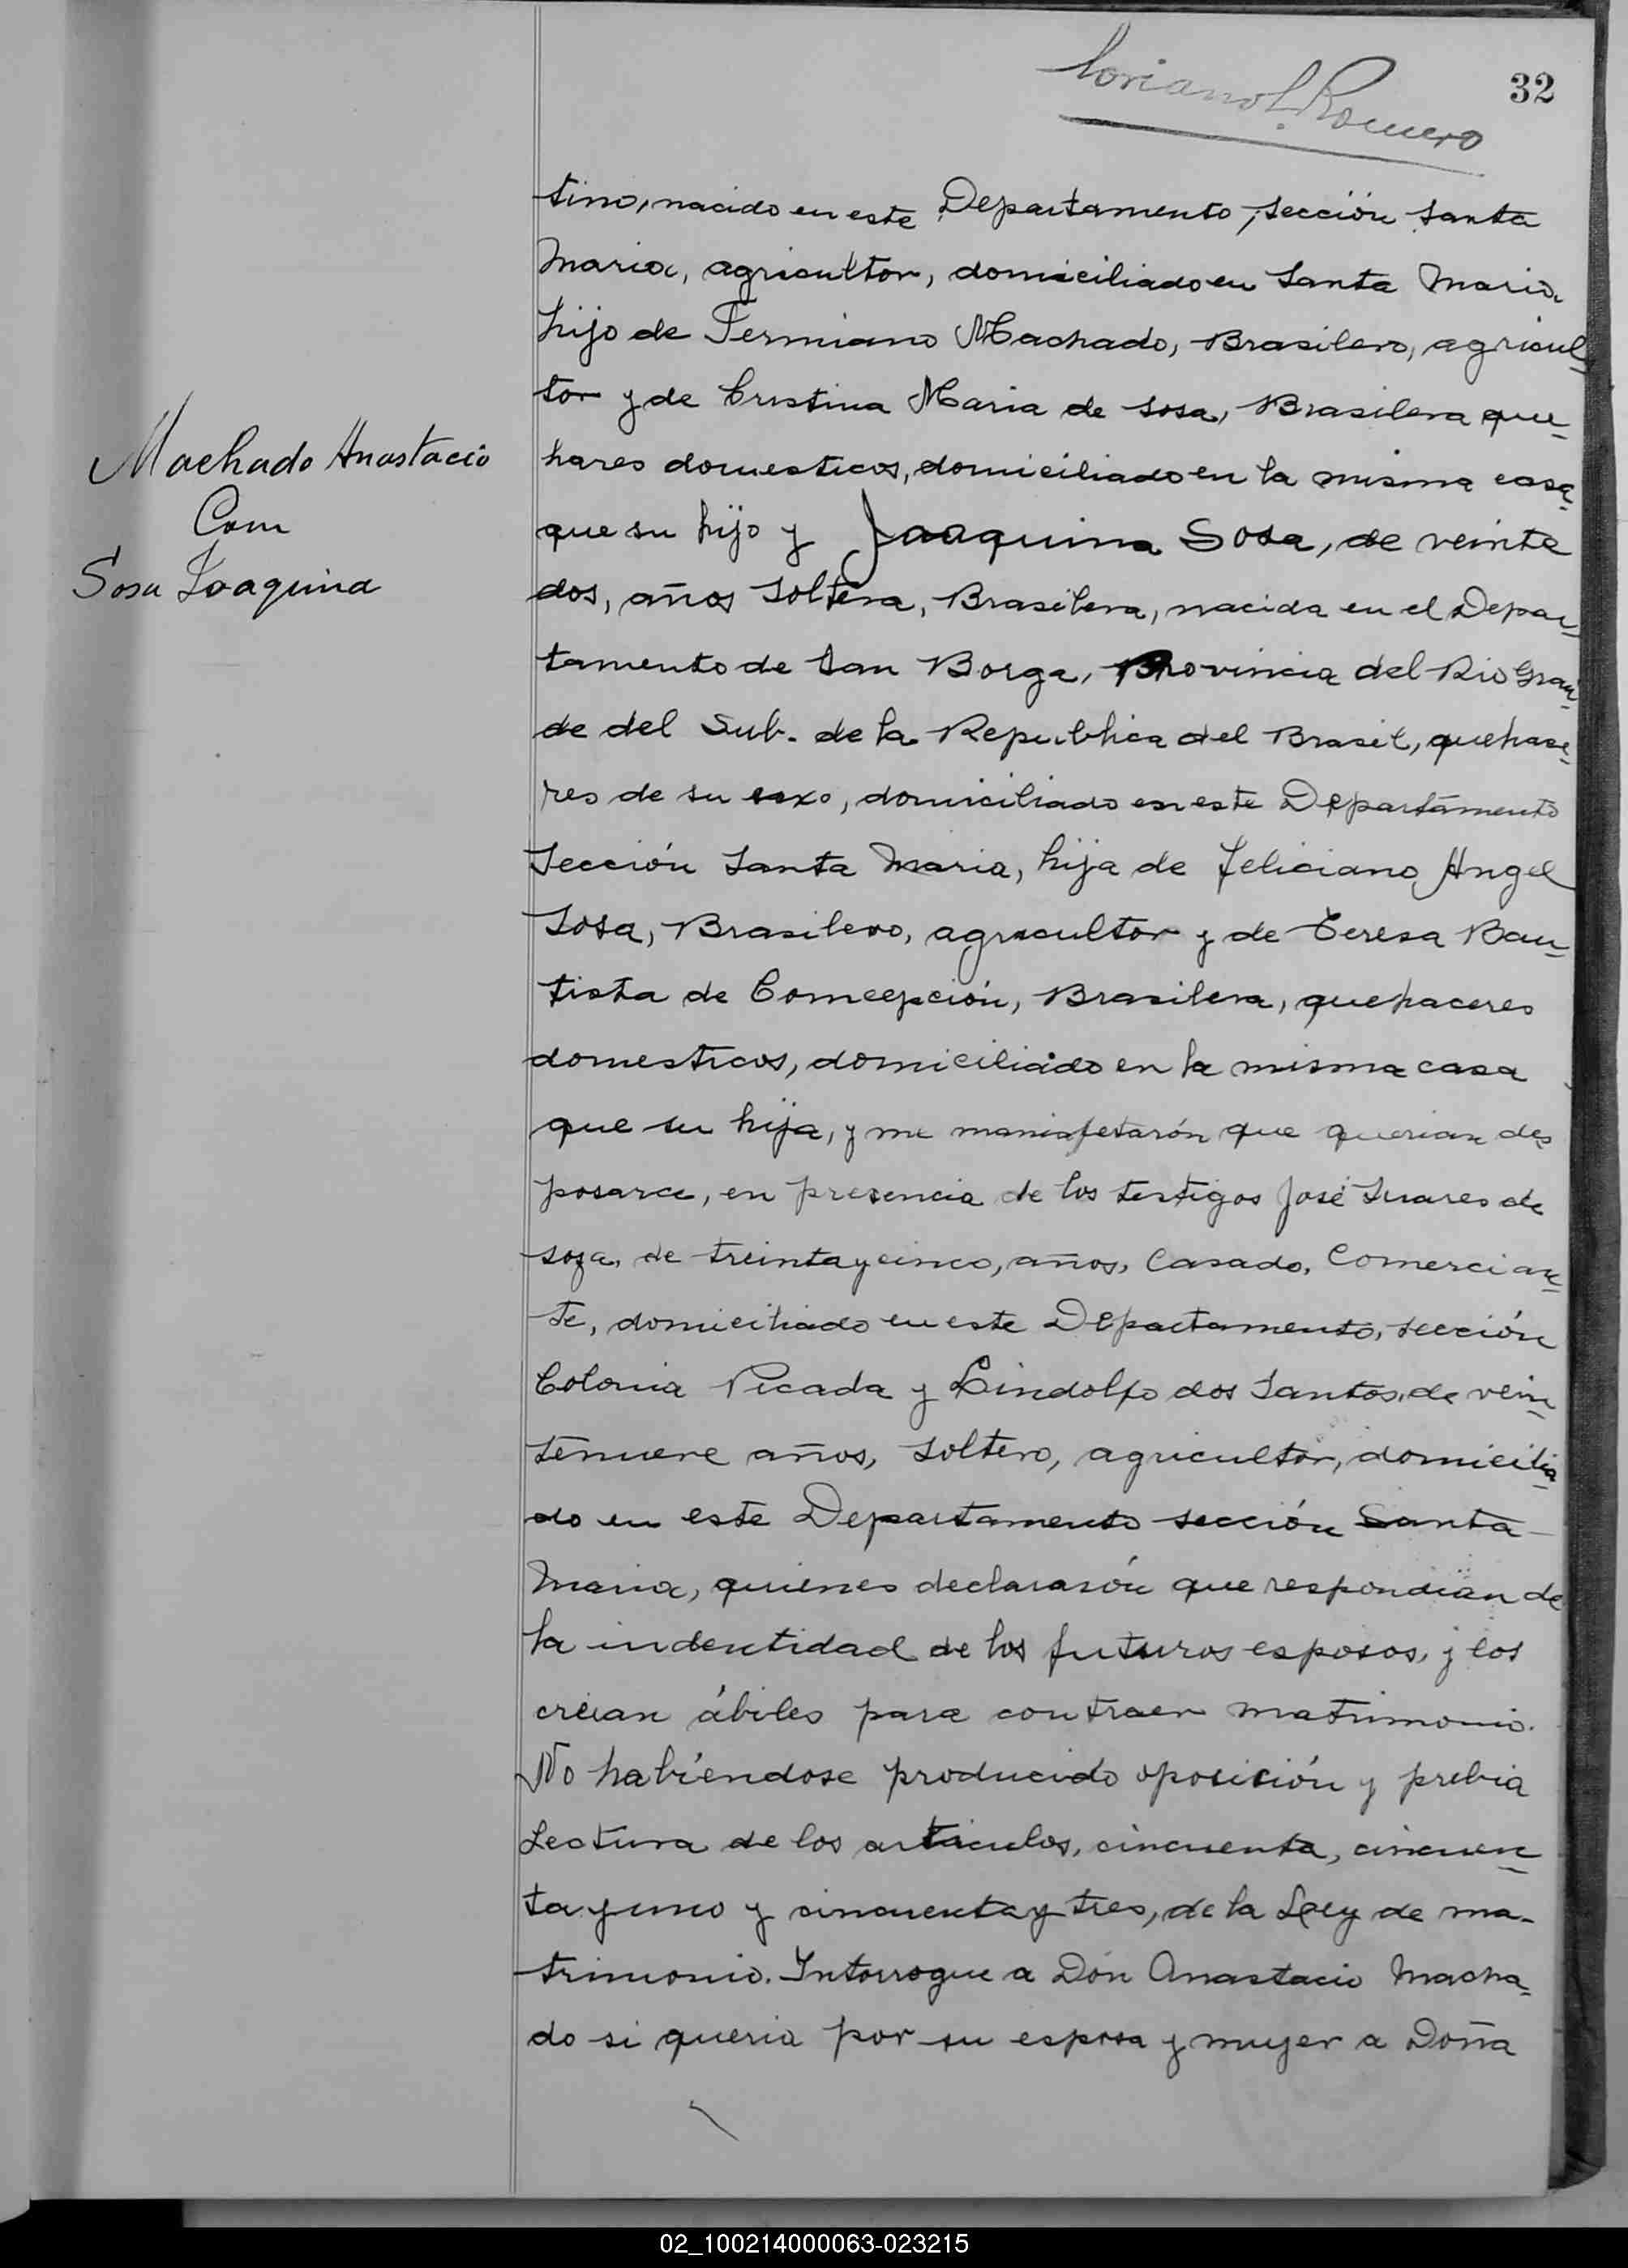 Coriano L. Romero
32
tino, nacido en este Departamento, sección Santa
Maria, agricultor, domiciliado en Santa Maria
hijo de Fermiano Machado, Brasilero, agricul-
tor y de Cristina Maria de Sosa, Brasilera que-
hares domesticos, domiciliado en la misma casa
que su hijo y Joaquina Sosa, de veinte
dos, años soltera, Brasilera, nacida en el Depar-
tamento de San Borga, Provincia del Rio Gran-
de del Sub. de la Republica del Brasil, quehase-
res de su sexo, domiciliado en este Departamento
Sección Santa Maria, hija de Feliciano Angel
Sosa, Brasilero, agricultor y de Teresa Bau-
tista de Comcepción, Brasilera, quehaceres
domesticos, domiciliado en la misma casa
que su hija, y me manisfetarón que querian des
posarce, en presencia de los testigos José Suares de
soza, de treinta y cinco, años, Casado, Comercian-
te, domiciliado en este Departamento, sección
Colonia Picada y Lindolfo dos Santos, de vein-
tenueve años, soltero, agricultor, domicilia-
do en este Departamento sección Santa
Maria, quienes declararón que respondian de
la indentidad de los futuros esposos, y los
creian ábiles para contraer matrimonio.
No habiéndose producido oposición y prebia
Lectura de los articulos, cincuenta, cincuen-
ta y uno y cincuenta y tres, de la Ley de ma-
trimonio. Intorrogue a Don Anastacio Macha-
do si queria por su esposa y mujer a Doña
Machado Anastacio
Com
Sosa Joaquina
02_100214000063-023215